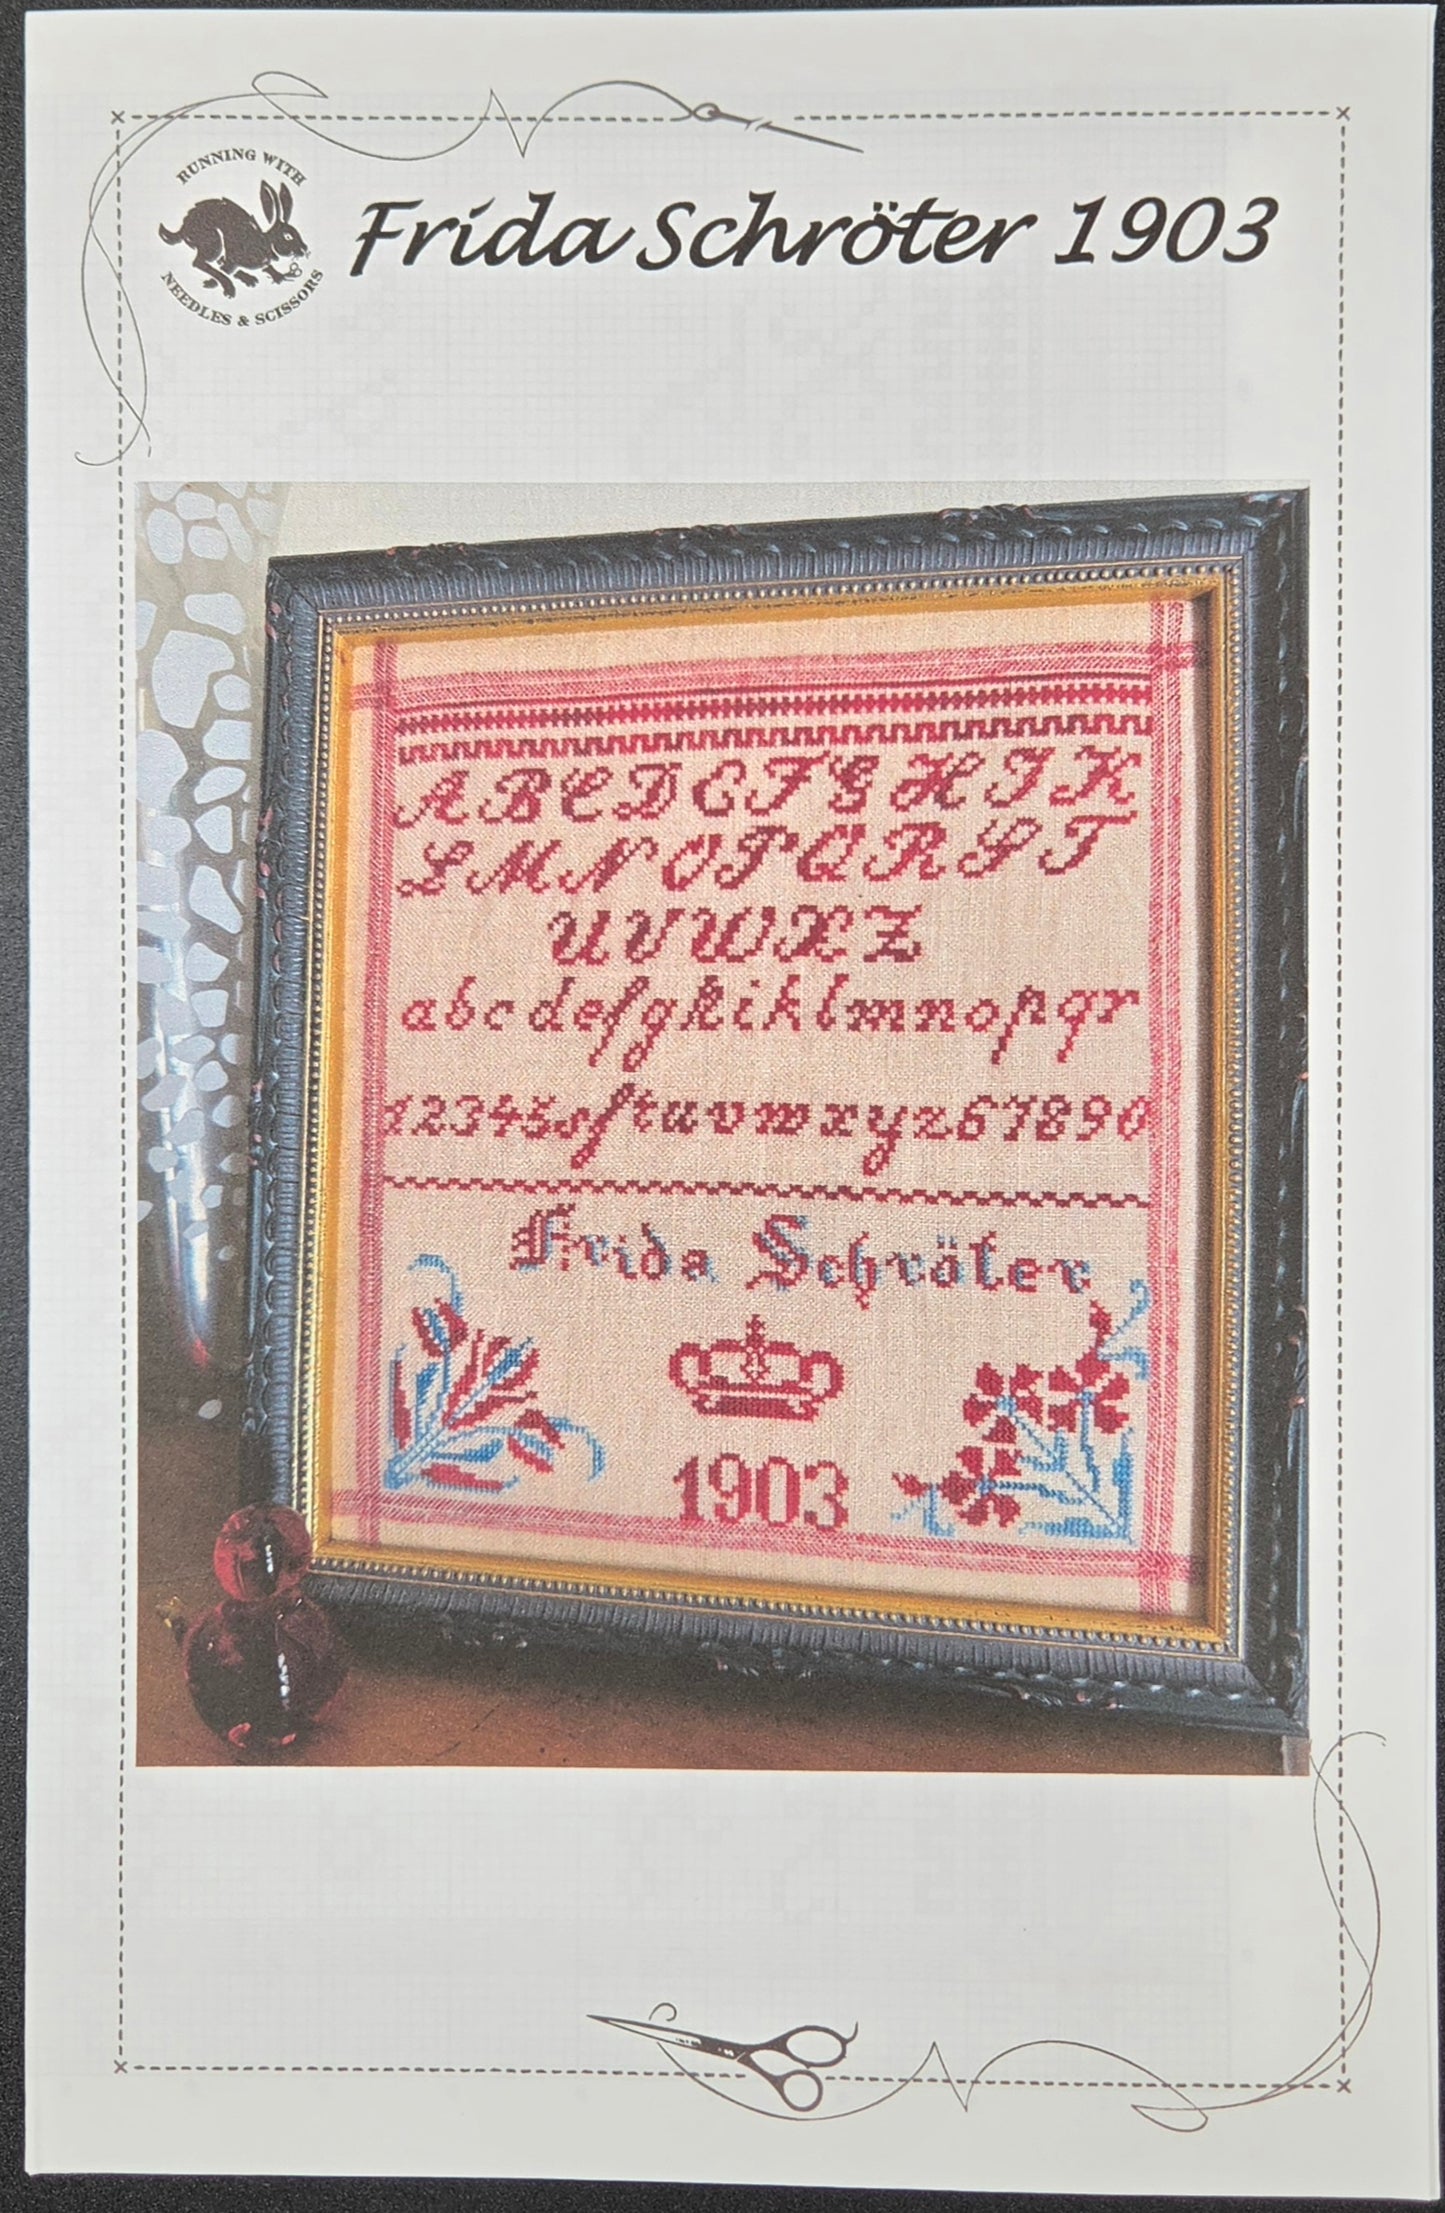 RUNNING WITH
NEEDLES & SCISSORS
Frida Schröter 1903
A B C D E F G H I K
L M N O P Q R S T
U V W X Z
a b c d e f g h i k l m n o p q r
1 2 3 4 5 s ſ t u v w x y z 6 7 8 9 0
Frida Schröter
1903